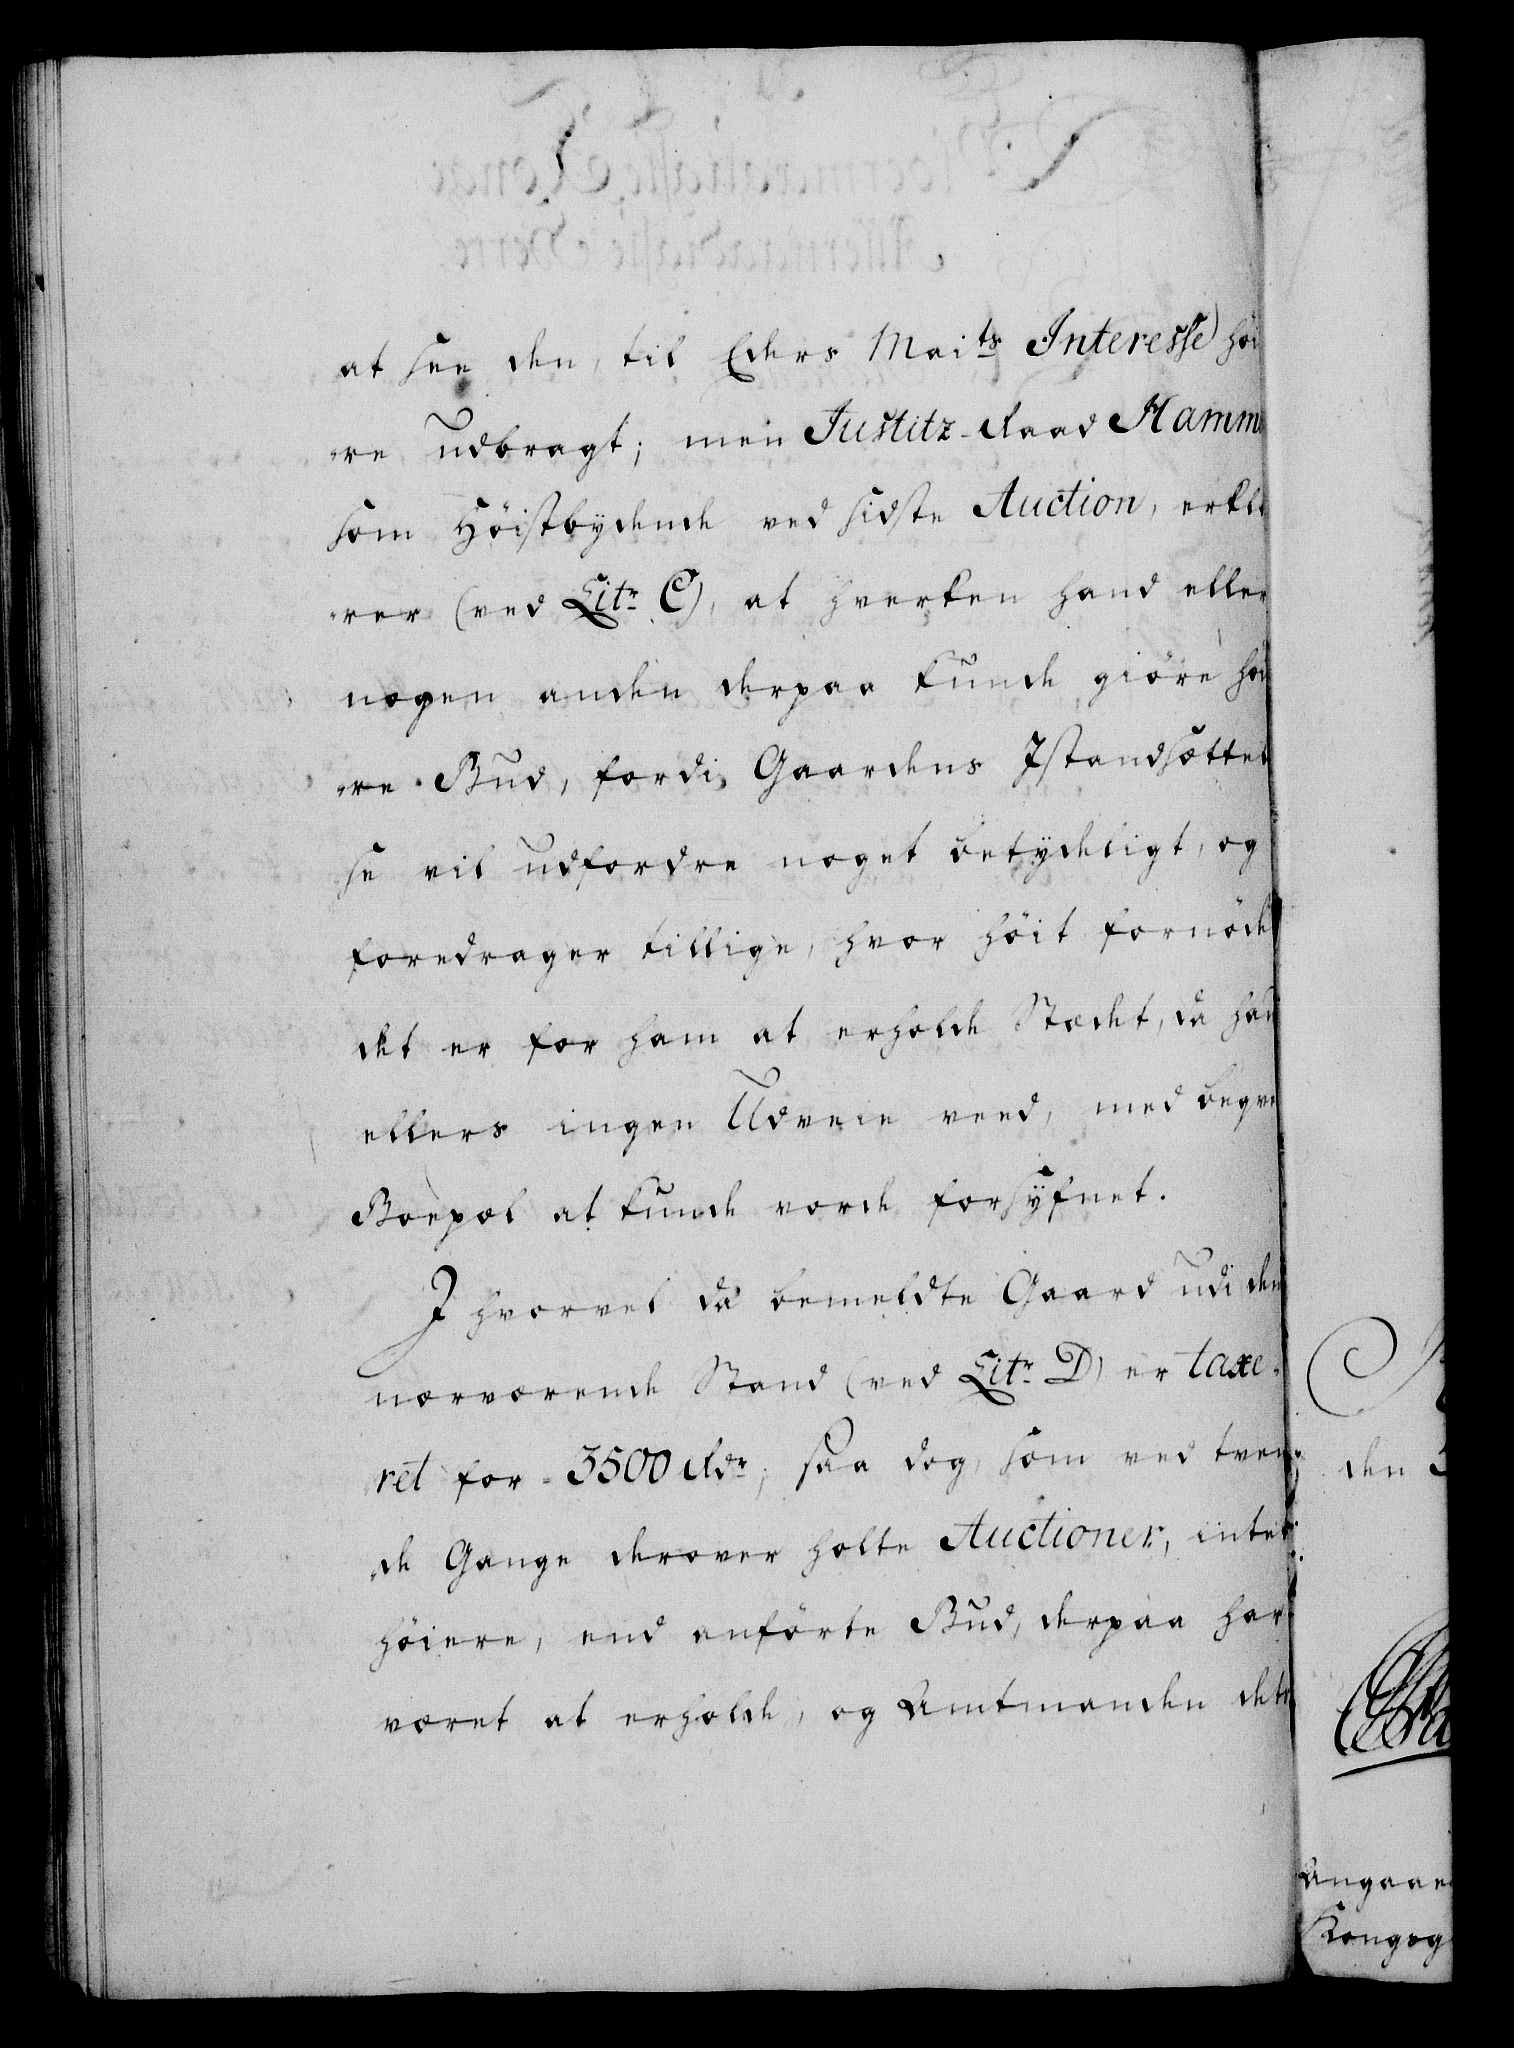 at see den, til Eders Maits Interesse höi
re udbragt; men Justitz-Raad Hamm
som Höistbydende ved sidste Auction, erklæ
rer (ved Litr C), at hverken hand eller
nogen anden derpaa kunde giöre höi
re Bud, fordi Gaardens Istandsættel
se vil udfordre noget betydeligt, og
foredrager tillige, hvor höit fornöden
det er for ham at erholde Stædet, da hand
ellers ingen Udveie veed, med beqve
Boepæl at kunde vorde forsÿnet.
Ihvorvel da bemeldte Gaard udi den
nærværende Stand (ved Litr D) er taxe-
ret for 3500 Rdr; saa dog, som ved tven
de Gange derover holte Auctioner, intet
höiere, end anförte Bud, derpaa har
været at erholde, og Amtmanden det
den
Angaaen
Kongsg